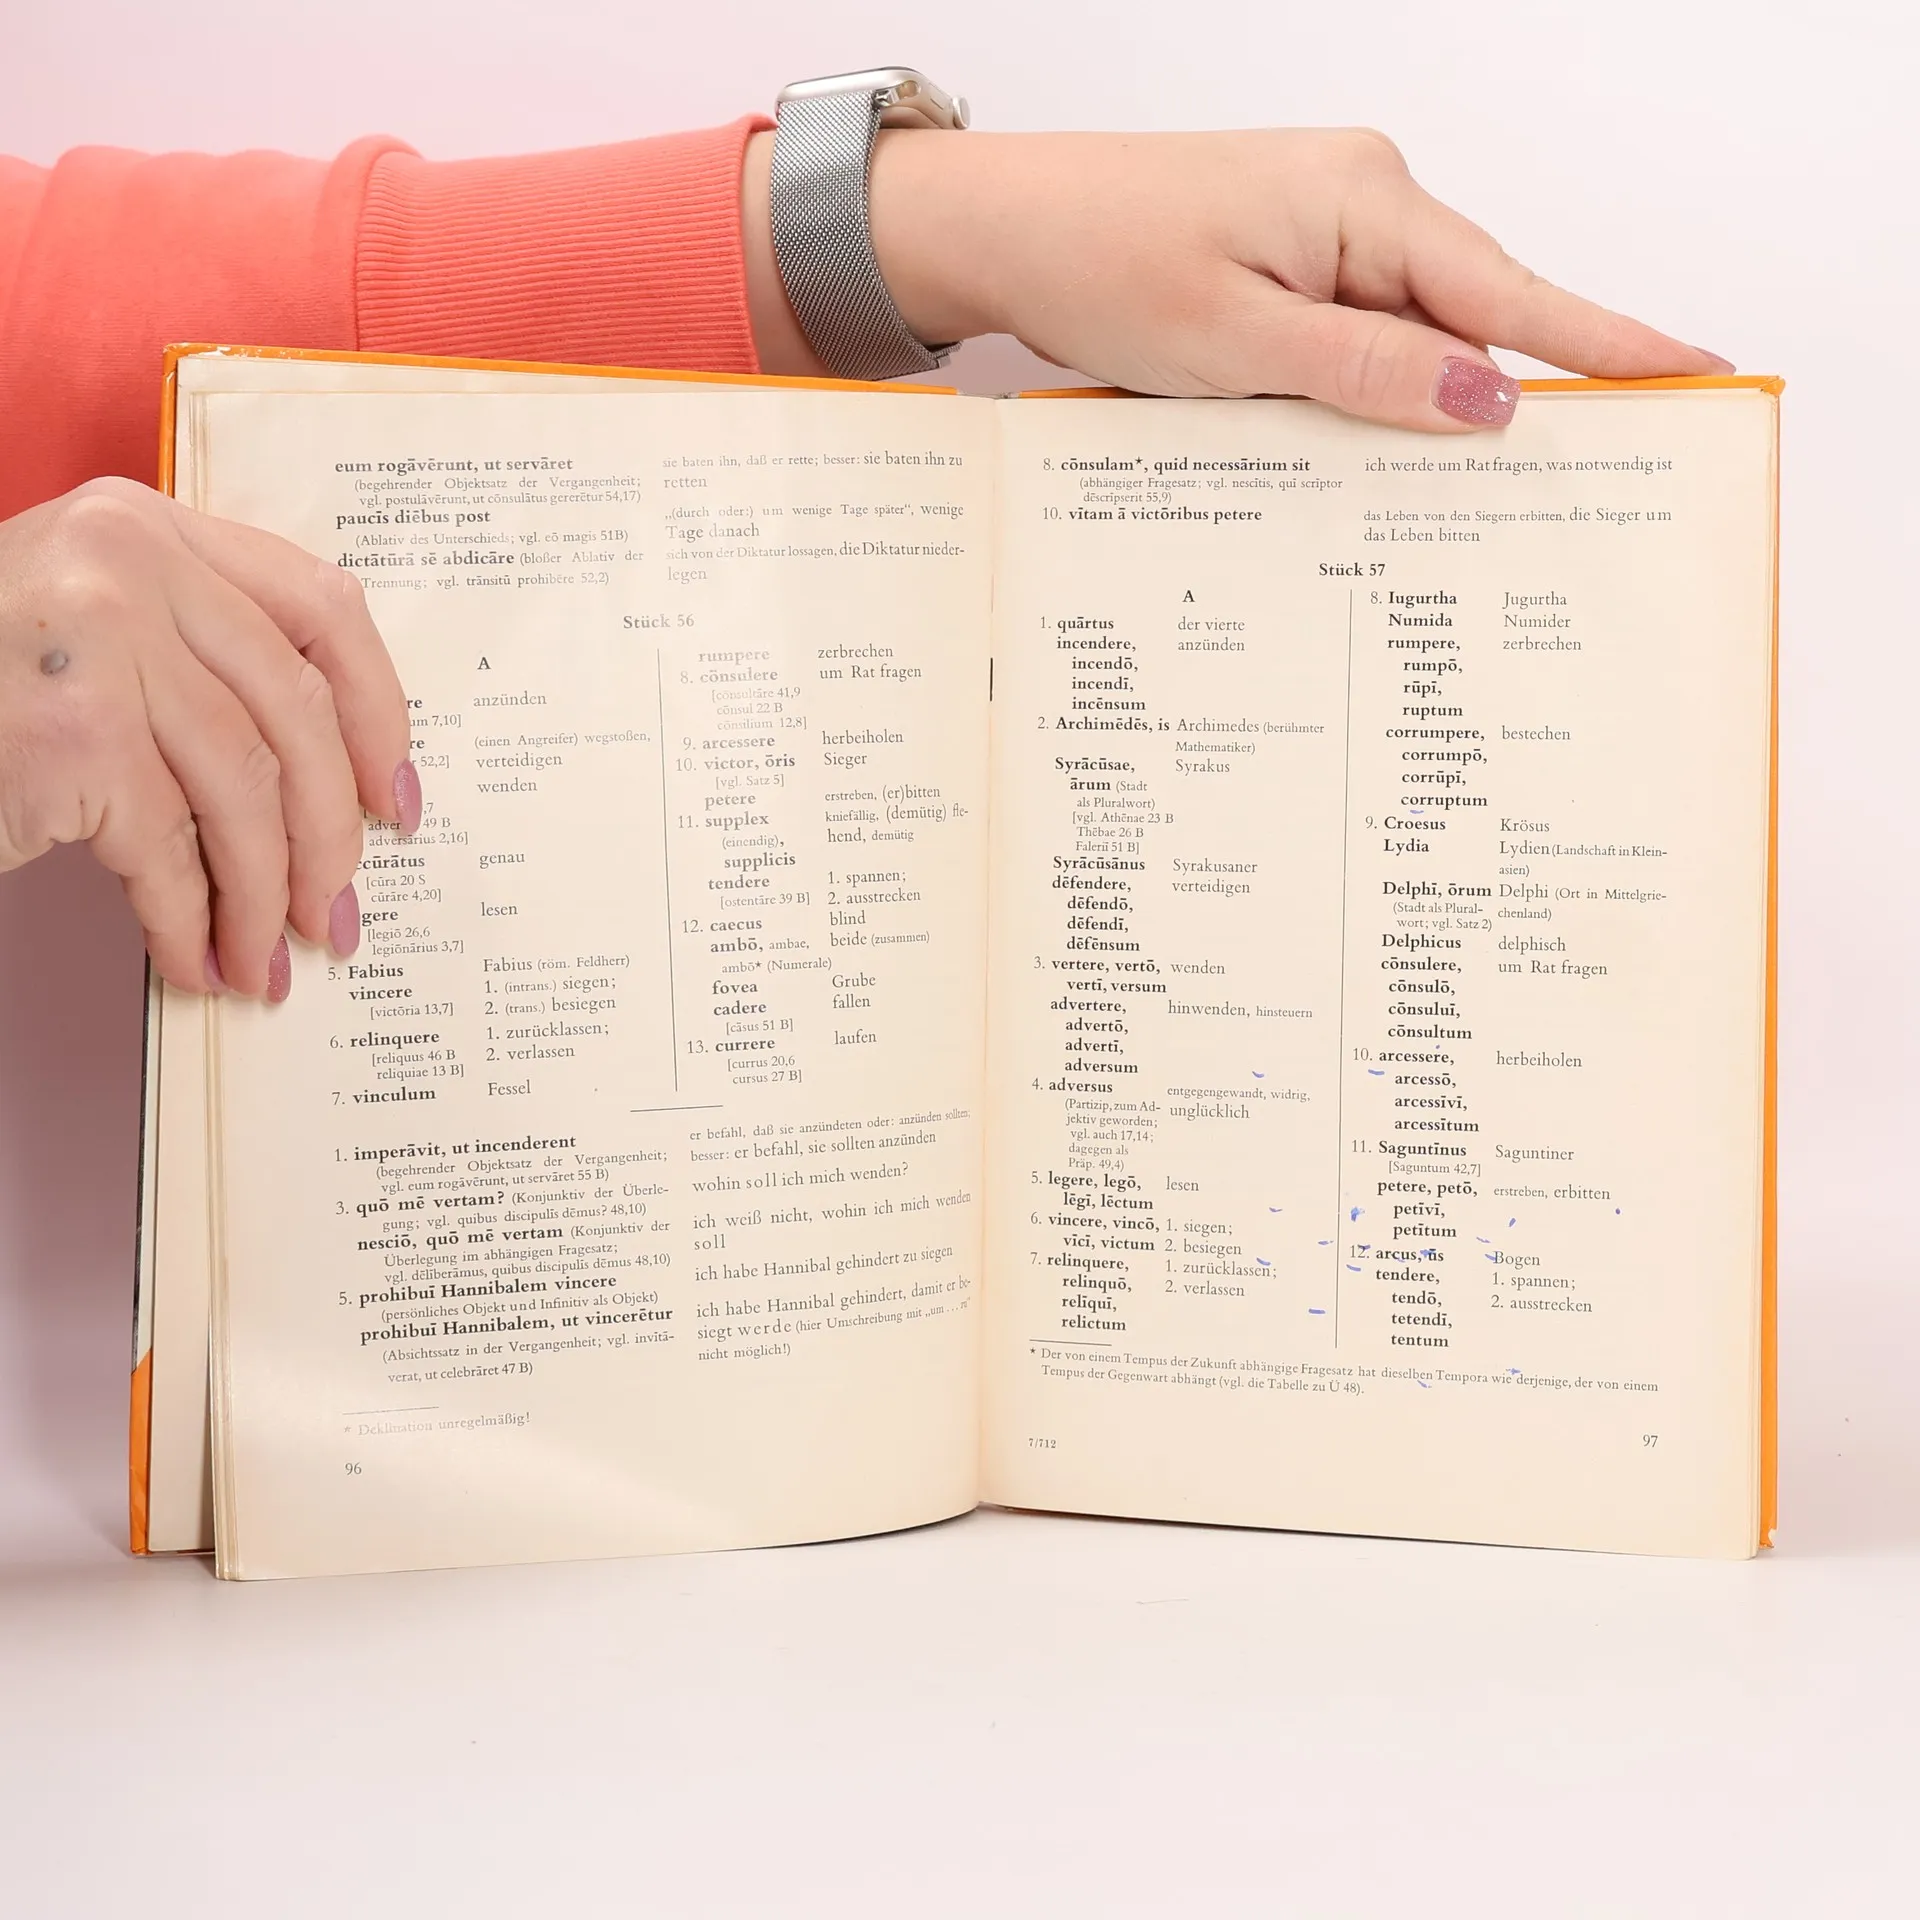 eum rogāvērunt, ut servāret
(begehrender Objektsatz der Vergangenheit;
vgl. postulāvērunt, ut cōnsulātus gererētur 54,17)
sie baten ihn, daß er rette; besser: sie baten ihn zu
retten
paucīs diēbus post
(Ablativ des Unterschieds; vgl. eō magis 51B)
„(durch oder:) um wenige Tage später“, wenige
Tage danach
dictātūrā sē abdicāre (bloßer Ablativ der
Trennung; vgl. trānsitū prohibēre 52,2)
sich von der Diktatur lossagen, die Diktatur nieder-
legen
Stück 56
A
re anzünden
um 7,10]
re (einen Angreifer) wegstoßen,
52,2] verteidigen
wenden
,7
adver 49 B
adversārius 2,16]
ccūrātus genau
[cūra 20 S
cūrāre 4,20]
gere lesen
[legiō 26,6
legiōnārius 3,7]
5. Fabius Fabius (röm. Feldherr)
vincere 1. (intrans.) siegen;
[victōria 13,7] 2. (trans.) besiegen
6. relinquere 1. zurücklassen;
[reliquus 46 B 2. verlassen
reliquiae 13 B]
7. vinculum Fessel
rumpere zerbrechen
8. cōnsulere um Rat fragen
[cōnsultāre 41,9
cōnsul 22 B
cōnsilium 12,8]
9. arcessere herbeiholen
10. victor, ōris Sieger
[vgl. Satz 5]
petere erstreben, (er)bitten
11. supplex kniefällig, (demütig) fle-
(einendig), hend, demütig
supplicis
tendere 1. spannen;
[ostentāre 39 B] 2. ausstrecken
12. caecus blind
ambō, ambae, beide (zusammen)
ambō* (Numerale)
fovea Grube
cadere fallen
[cāsus 51 B]
13. currere laufen
[currus 20,6
cursus 27 B]
1. imperāvit, ut incenderent
(begehrender Objektsatz der Vergangenheit;
vgl. eum rogāvērunt, ut servāret 55 B)
er befahl, daß sie anzündeten oder: anzünden sollten;
besser: er befahl, sie sollten anzünden
3. quō mē vertam? (Konjunktiv der Überle-
gung; vgl. quibus discipulīs dēmus? 48,10)
wohin soll ich mich wenden?
nesciō, quō mē vertam (Konjunktiv der
Überlegung im abhängigen Fragesatz;
vgl. dēlīberāmus, quibus discipulīs dēmus 48,10)
ich weiß nicht, wohin ich mich wenden
soll
5. prohibuī Hannibalem vincere
(persönliches Objekt und Infinitiv als Objekt)
ich habe Hannibal gehindert zu siegen
prohibuī Hannibalem, ut vincerētur
(Absichtssatz in der Vergangenheit; vgl. invītā-
verat, ut celebrāret 47 B)
ich habe Hannibal gehindert, damit er be-
siegt werde (hier Umschreibung mit „um ... zu“
nicht möglich!)
* Deklination unregelmäßig!
96
8. cōnsulam*, quid necessārium sit ich werde um Rat fragen, was notwendig ist
(abhängiger Fragesatz; vgl. nescītis, quī scrīptor
dēscrīpserit 55,9)
10. vītam ā victōribus petere das Leben von den Siegern erbitten, die Sieger um
das Leben bitten
Stück 57
A
1. quārtus der vierte
incendere, anzünden
incendō,
incendī,
incēnsum
2. Archimēdēs, is Archimedes (berühmter
Mathematiker)
Syrācūsae, Syrakus
ārum (Stadt
als Pluralwort)
[vgl. Athēnae 23 B
Thēbae 26 B
Faleriī 51 B]
Syrācūsānus Syrakusaner
dēfendere, verteidigen
dēfendō,
dēfendī,
dēfēnsum
3. vertere, vertō, wenden
vertī, versum
advertere, hinwenden, hinsteuern
advertō,
advertī,
adversum
4. adversus entgegengewandt, widrig,
(Partizip, zum Ad- unglücklich
jektiv geworden;
vgl. auch 17,14;
dagegen als
Präp. 49,4)
5. legere, legō, lesen
lēgī, lēctum
6. vincere, vincō, 1. siegen;
vīcī, victum 2. besiegen
7. relinquere, 1. zurücklassen;
relinquō, 2. verlassen
relīquī,
relictum
8. Iugurtha Jugurtha
Numida Numider
rumpere, zerbrechen
rumpō,
rūpī,
ruptum
corrumpere, bestechen
corrumpō,
corrūpī,
corruptum
9. Croesus Krösus
Lydia Lydien (Landschaft in Klein-
asien)
Delphī, ōrum Delphi (Ort in Mittelgrie-
(Stadt als Plural- chenland)
wort; vgl. Satz 2)
Delphicus delphisch
cōnsulere, um Rat fragen
cōnsulō,
cōnsuluī,
cōnsultum
10. arcessere, herbeiholen
arcessō,
arcessīvī,
arcessītum
11. Saguntīnus Saguntiner
[Saguntum 42,7]
petere, petō, erstreben, erbitten
petīvī,
petītum
12. arcus, ūs Bogen
tendere, 1. spannen;
tendō, 2. ausstrecken
tetendī,
tentum
* Der von einem Tempus der Zukunft abhängige Fragesatz hat dieselben Tempora wie derjenige, der von einem
Tempus der Gegenwart abhängt (vgl. die Tabelle zu Ü 48).
7/712
97